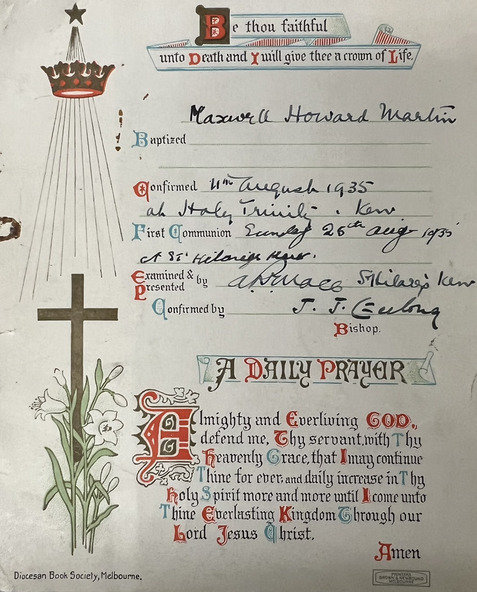 Be thou faithful
unto Death and I will give thee a crown of Life.
Maxwell Howard Martin
Baptized
Confirmed 11th August 1935
at Holy Trinity. Kew
First Communion Sunday 25th Aug 1935
at St Hilary's Kew.
Examined & Presented by St Hilary's Kew
Confirmed by J. J. Geelong
Bishop.
A DAILY PRAYER
Almighty and Everliving GOD,
defend me, Thy servant, with Thy
Heavenly Grace, that I may continue
Thine for ever, and daily increase in Thy
Holy Spirit more and more until I come unto
Thine Everlasting Kingdom Through our
Lord Jesus Christ.
Amen
Diocesan Book Society, Melbourne.